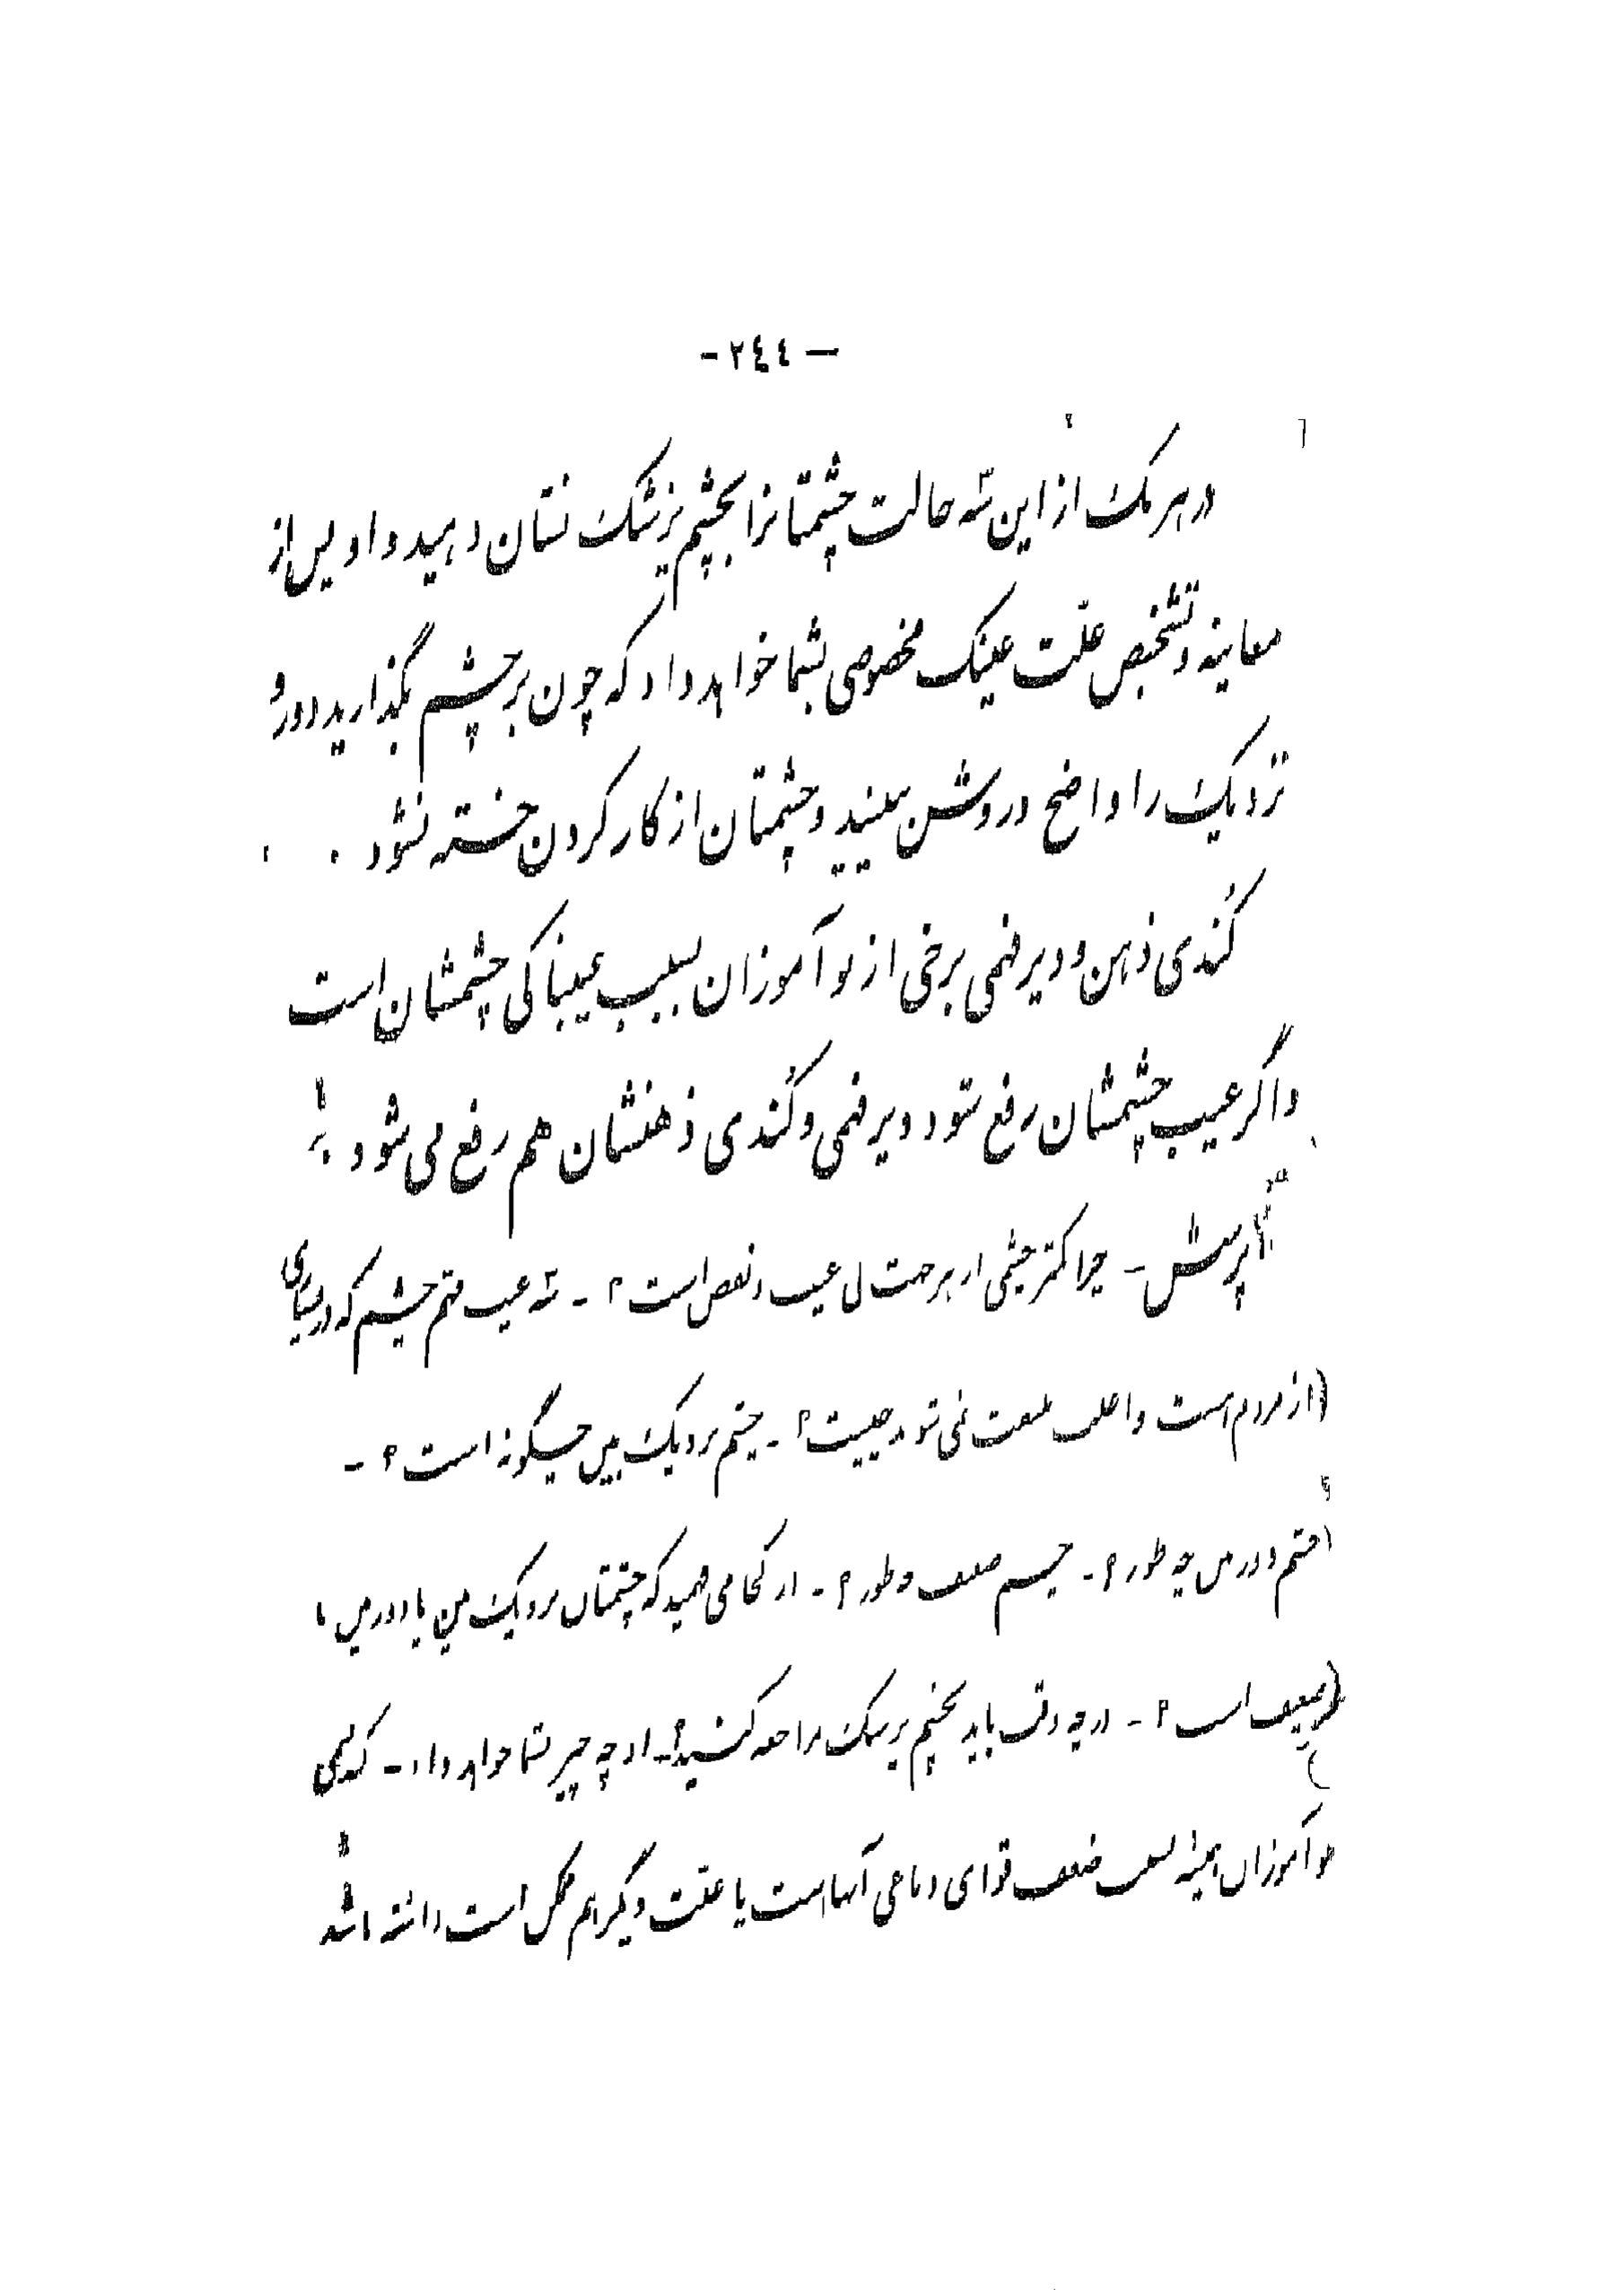 - ٢٤٤ -
در هر یک از این سه حالت چشمتانرا بچشم پزشک نشان دهید و او پس از
معاینه و تشخیص علّت عینک مخصوصی بشما خواهد داد که چون بر چشم بگذارید دور و
نزدیک را واضح و روشن ببینید و چشمتان از کار کردن خسته نشود .
کُندی ذهن و دیر فهمی برخی از نو آموزان بسبب عیبناکی چشمشان است
و اگر عیب چشمشان رفع شود دیر فهمی و کُندی ذهنشان هم رفع می شود .
پرسش - چرا کمتر چشمی از هر جهت بی عیب و نقص است ؟ - سه عیب مهم چشم که در بسیاری
از مردم است و اغلب ملتفت نمی شوند چیست ؟ - چشم نزدیک بین چگونه است ؟ -
چشم دور بین چه طور ؟ - چشم ضعیف چطور ؟ - از کجا می فهمید که چشمتان نزدیک بین یا دوربین یا
ضعیف است ؟ - در چه وقت باید بچشم پزشک مراجعه کنید ؟ - او چه چیز بشما خواهد داد - کند فهمی
نو آموزان همیشه بسبب ضعف قوای دماغی آنها است یا علّت دیگر هم ممکن است داشته باشد